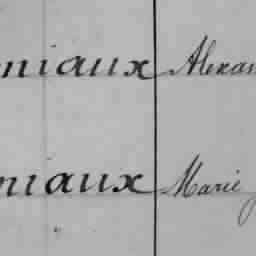 niaux Alexan
niaux Marie